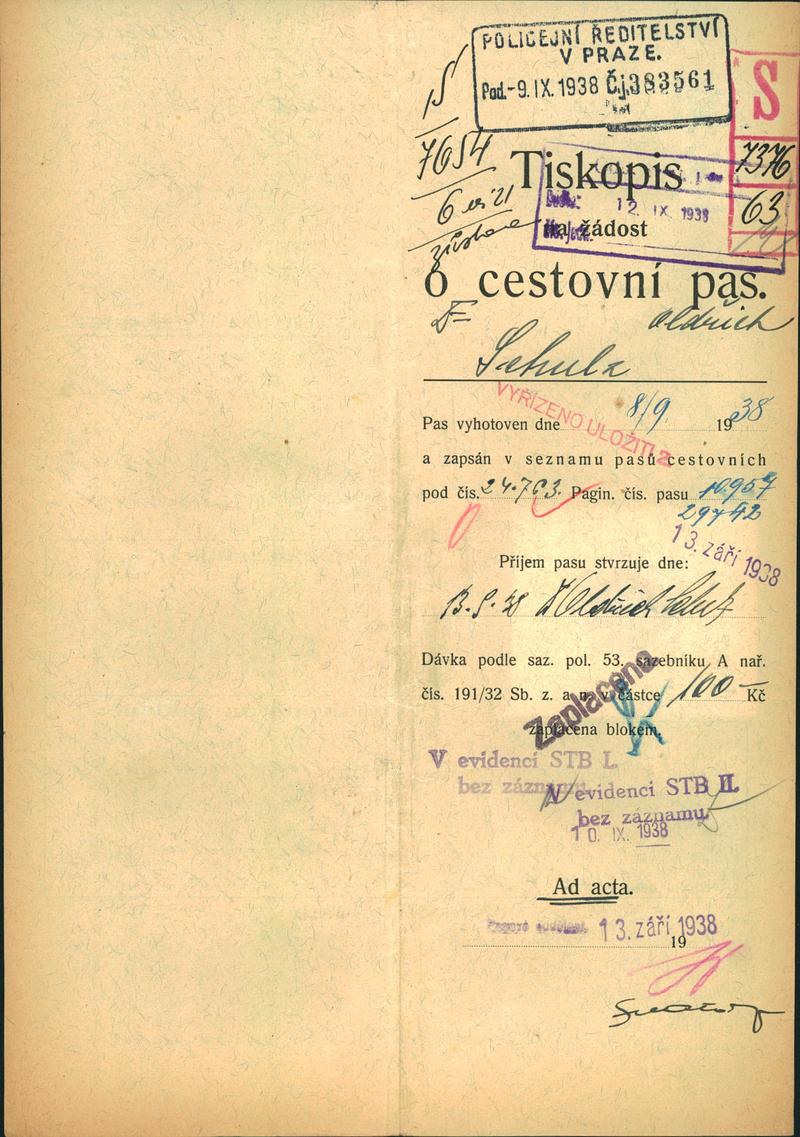 POLICEJNÍ ŘEDITELSTVÍ
V PRAZE.
Pod.-9.IX.1938 Čj.383561
S
7376
63
15
7654
6
Tiskopis
12. IX. 1938
na žádost
o cestovní pas.
Oldřich
Schulz
VYŘÍZENO ULOŽITI
Pas vyhotoven dne 8/9. 1938
a zapsán v seznamu pasů cestovních
pod čís. 24.763. Pagin. čís. pasu 10957
29742
13. září 1938
Příjem pasu stvrzuje dne:
Oldřich Schulz
Dávka podle saz. pol. 53. sazebníku A nař.
čís. 191/32 Sb. z. a n. v částce 100 — Kč
Zaplaceno
zaplacena blokem.
V evidenci STB I.
bez záznamu
V evidenci STB II.
bez záznamu
10. IX. 1938
Ad acta.
13. září 1938
19